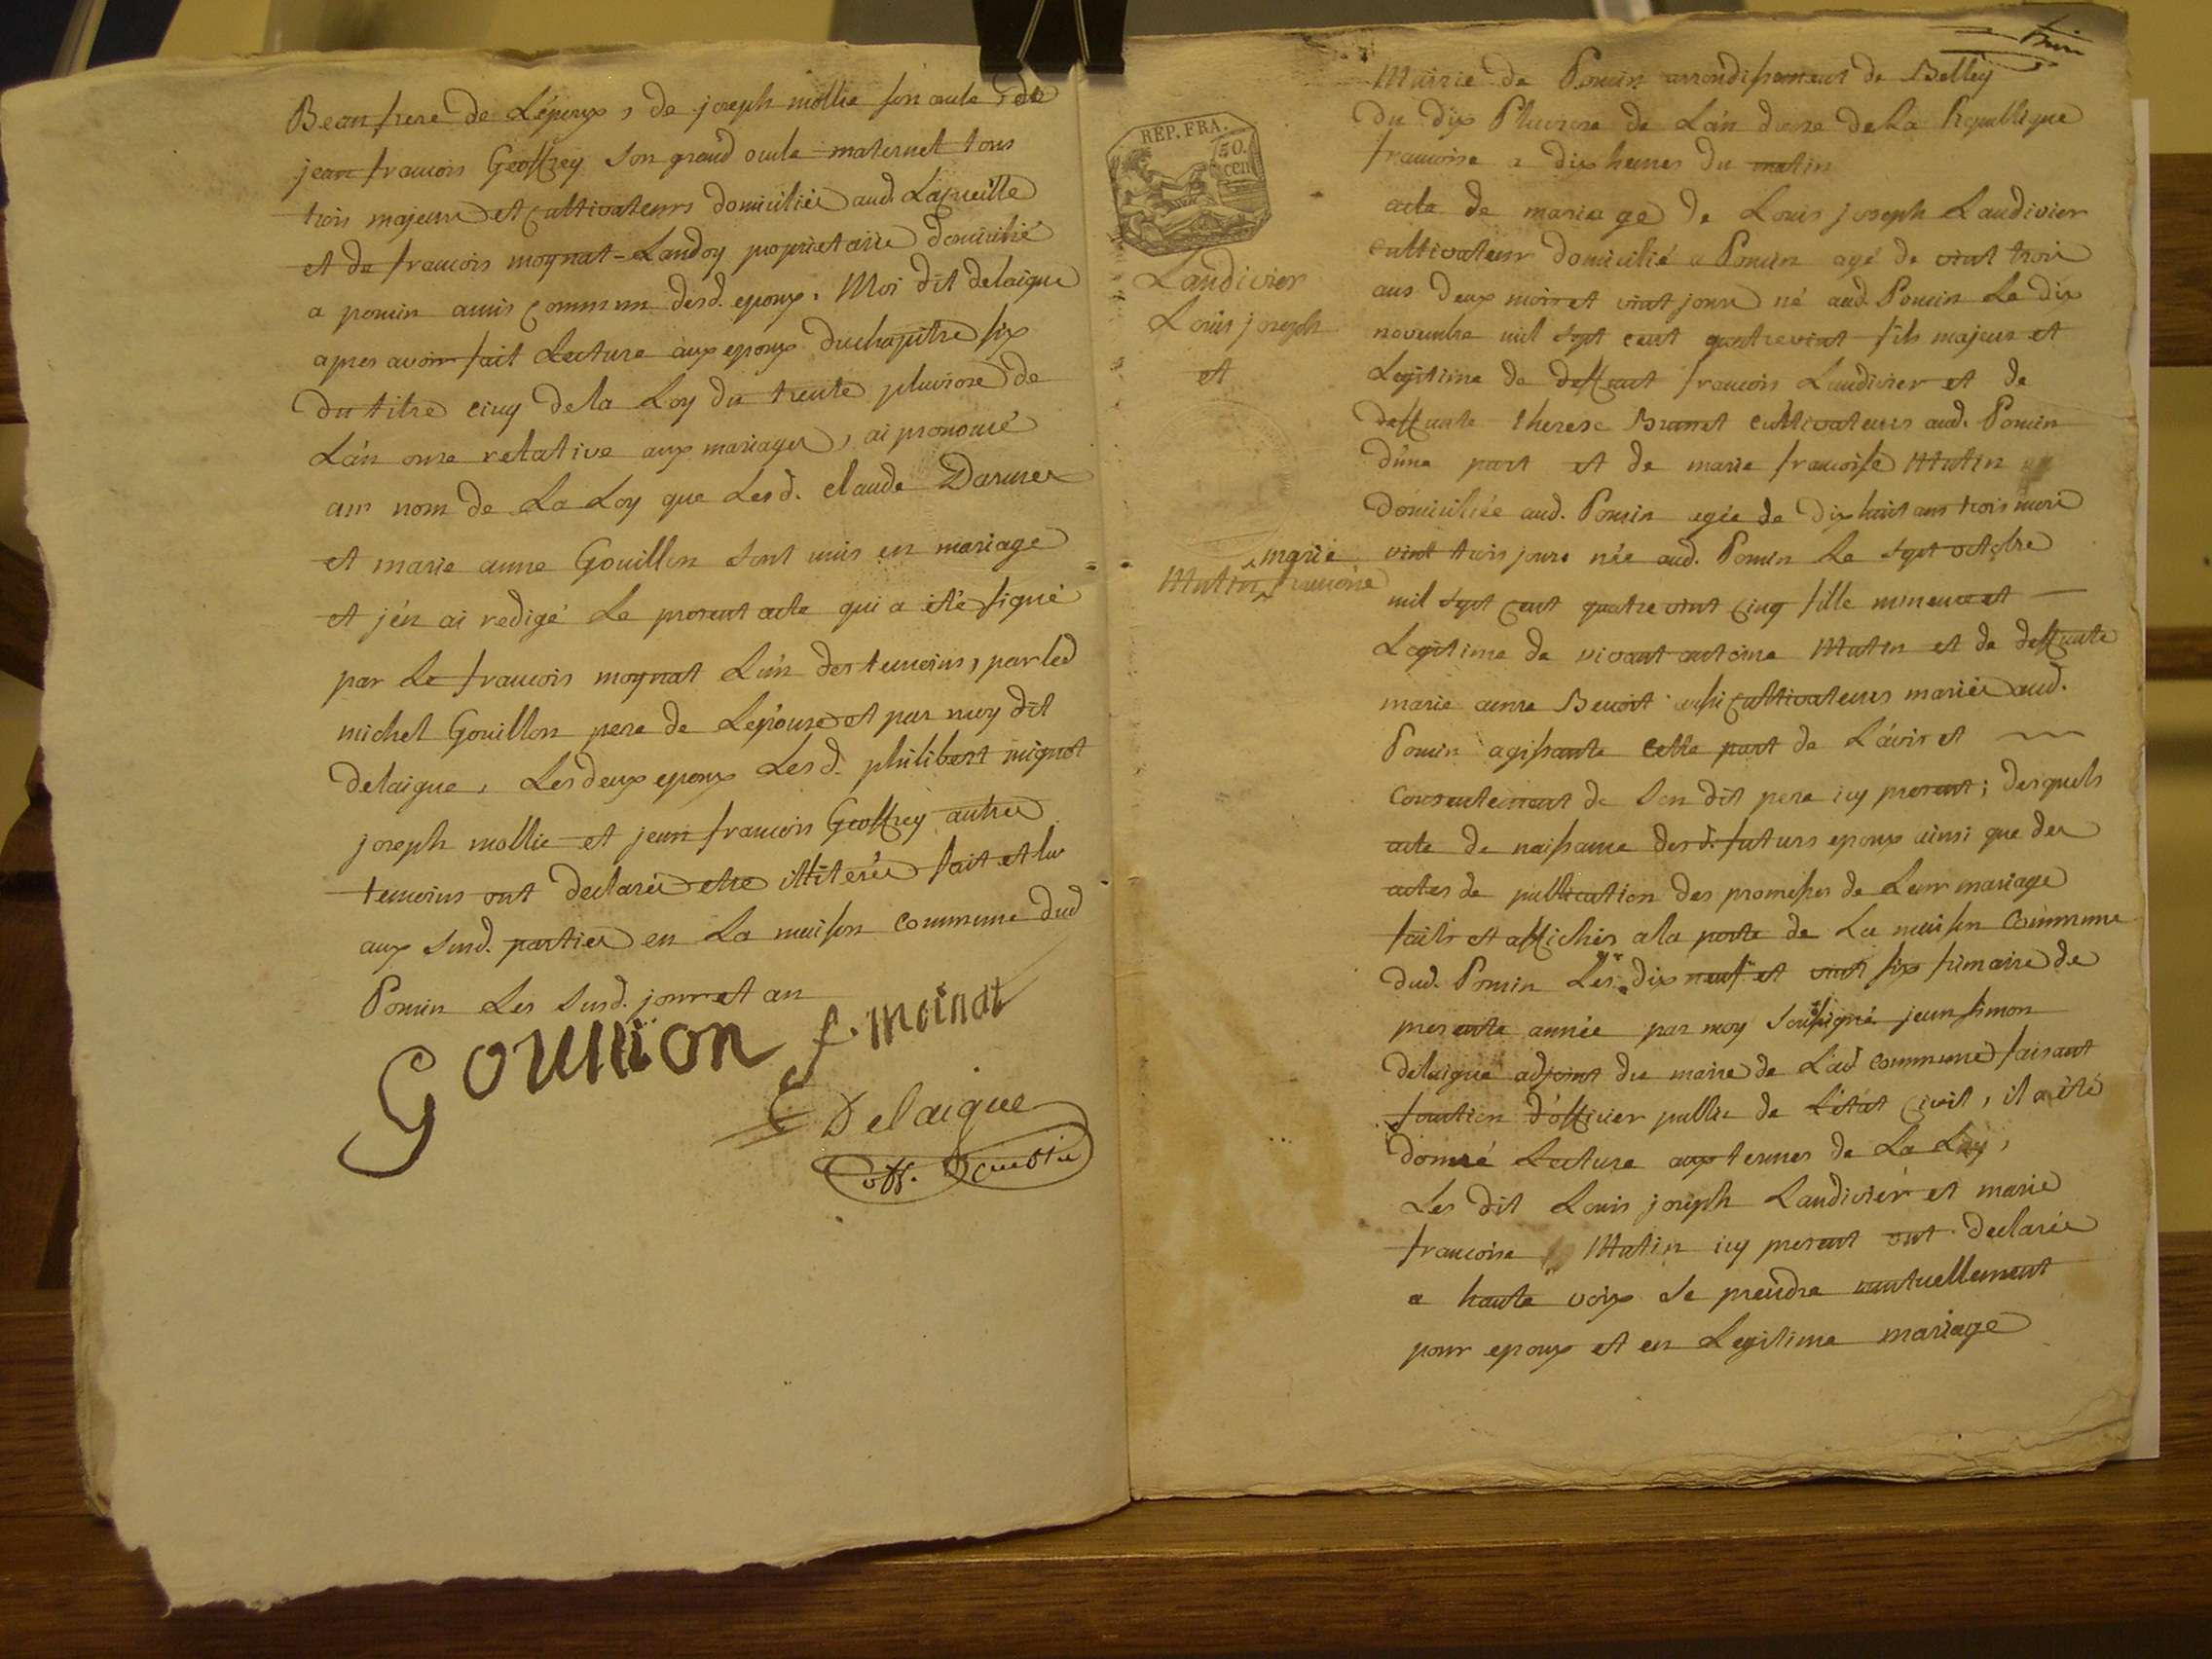 Beaufrere de Lépoux, de joseph mollie son oncle, de
jean francois Geoffrey son grand oncle maternel tous
trois majeurs et cultivateurs domiciliés aud. Lapreille
et de francois moynat-Landoy proprietaire domicilié
a pomin amis commun desd. epoux. Moi dit delaigue
apres avoir fait Lecture aux epoux du chapitre six
du titre cinq de la Loy du trente pluviose de
Lán onze relative aux mariages, ai prononcé
au nom de La Loy que Lesd. claude Darmet
et marie anne Gouillon sont unis en mariage
et jén ai redigé Le present acte qui a été signé
par Le francois moynat Lún des temoins, par led
michel Gouillon pere de Lépouse et par moy dit
delaigue, Les deux epoux Lesd. philibert mignot
joseph mollie et jean francois Geoffrey autres
temoins ont declarés etre illiterés fait et lu
aux susd. parties en La maison commune dud
Pomin Les susd. jour et an
Goullion f. moinat
Delaigue
off.
Mairie de Pomin arrondissement de Belley
Du dix Pluviose de Lán douze de La Republique
francoise a dix heures du matin
acte de mariage de Louis joseph Landivier
cultivateur domicilié a Pomin agé de vint trois
ans deux mois et vint jours né aud. Pomin Le dix
novembre mil sept cent quatrevint fils majeur et
Legitime de deffunt francois Landivier et de
deffunte therese Brunet cultivateurs aud. Pomin
dúne part et de marie francoise Mutin
domiciliée aud. Pomin agée de dix huit ans trois mois
vint trois jours née aud. Pomin Le sept octobre
mil sept cent quatre vint cinq fille mineure et
Legitime de vivant antoine Mutin et de deffunte
marie anne Benoit aussi cultivateurs mariés aud.
Pomin agissante de Lávis et
consentement de son dit pere icy present; desquels
acte de naissance desd. futurs epoux ainsi que des
actes de publication des promesses de Leur mariage
faits et affichés a la porte de La maison commune
dud. Pomin Les dix neuf et vint six frimaire de
presente année par moy soussigné jean simon
delaigue adjoint du maire de Lad commune faisant
fonction dófficier public de Létat civil, il a été
donné Lecture aux termes de La Loy,
Les dit Louis joseph Landivier et marie
francoise Mutin icy present ont declarés
a haute voix se prendre mutuellement
pour epoux et en Legitime mariage
REP. FRA.
50.
cen
Landivier
Louis joseph
et
marie
Mutin francoise